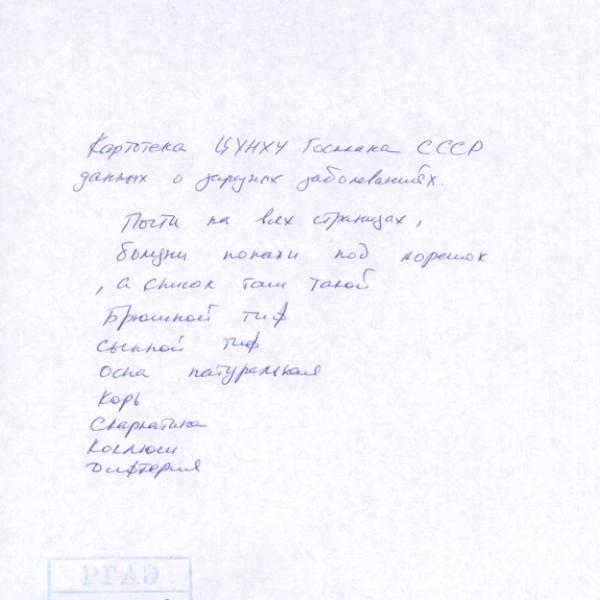 Картотека ЦУНХУ Госплана СССР
данных о заразных заболеваниях.
Почти на всех страницах,
болезни попали под корешок
, а список там такой
Брюшной тиф
сыпной тиф
Оспа натуральная
Корь
Скарлатина
Коклюш
Дифтерия
РГАЭ